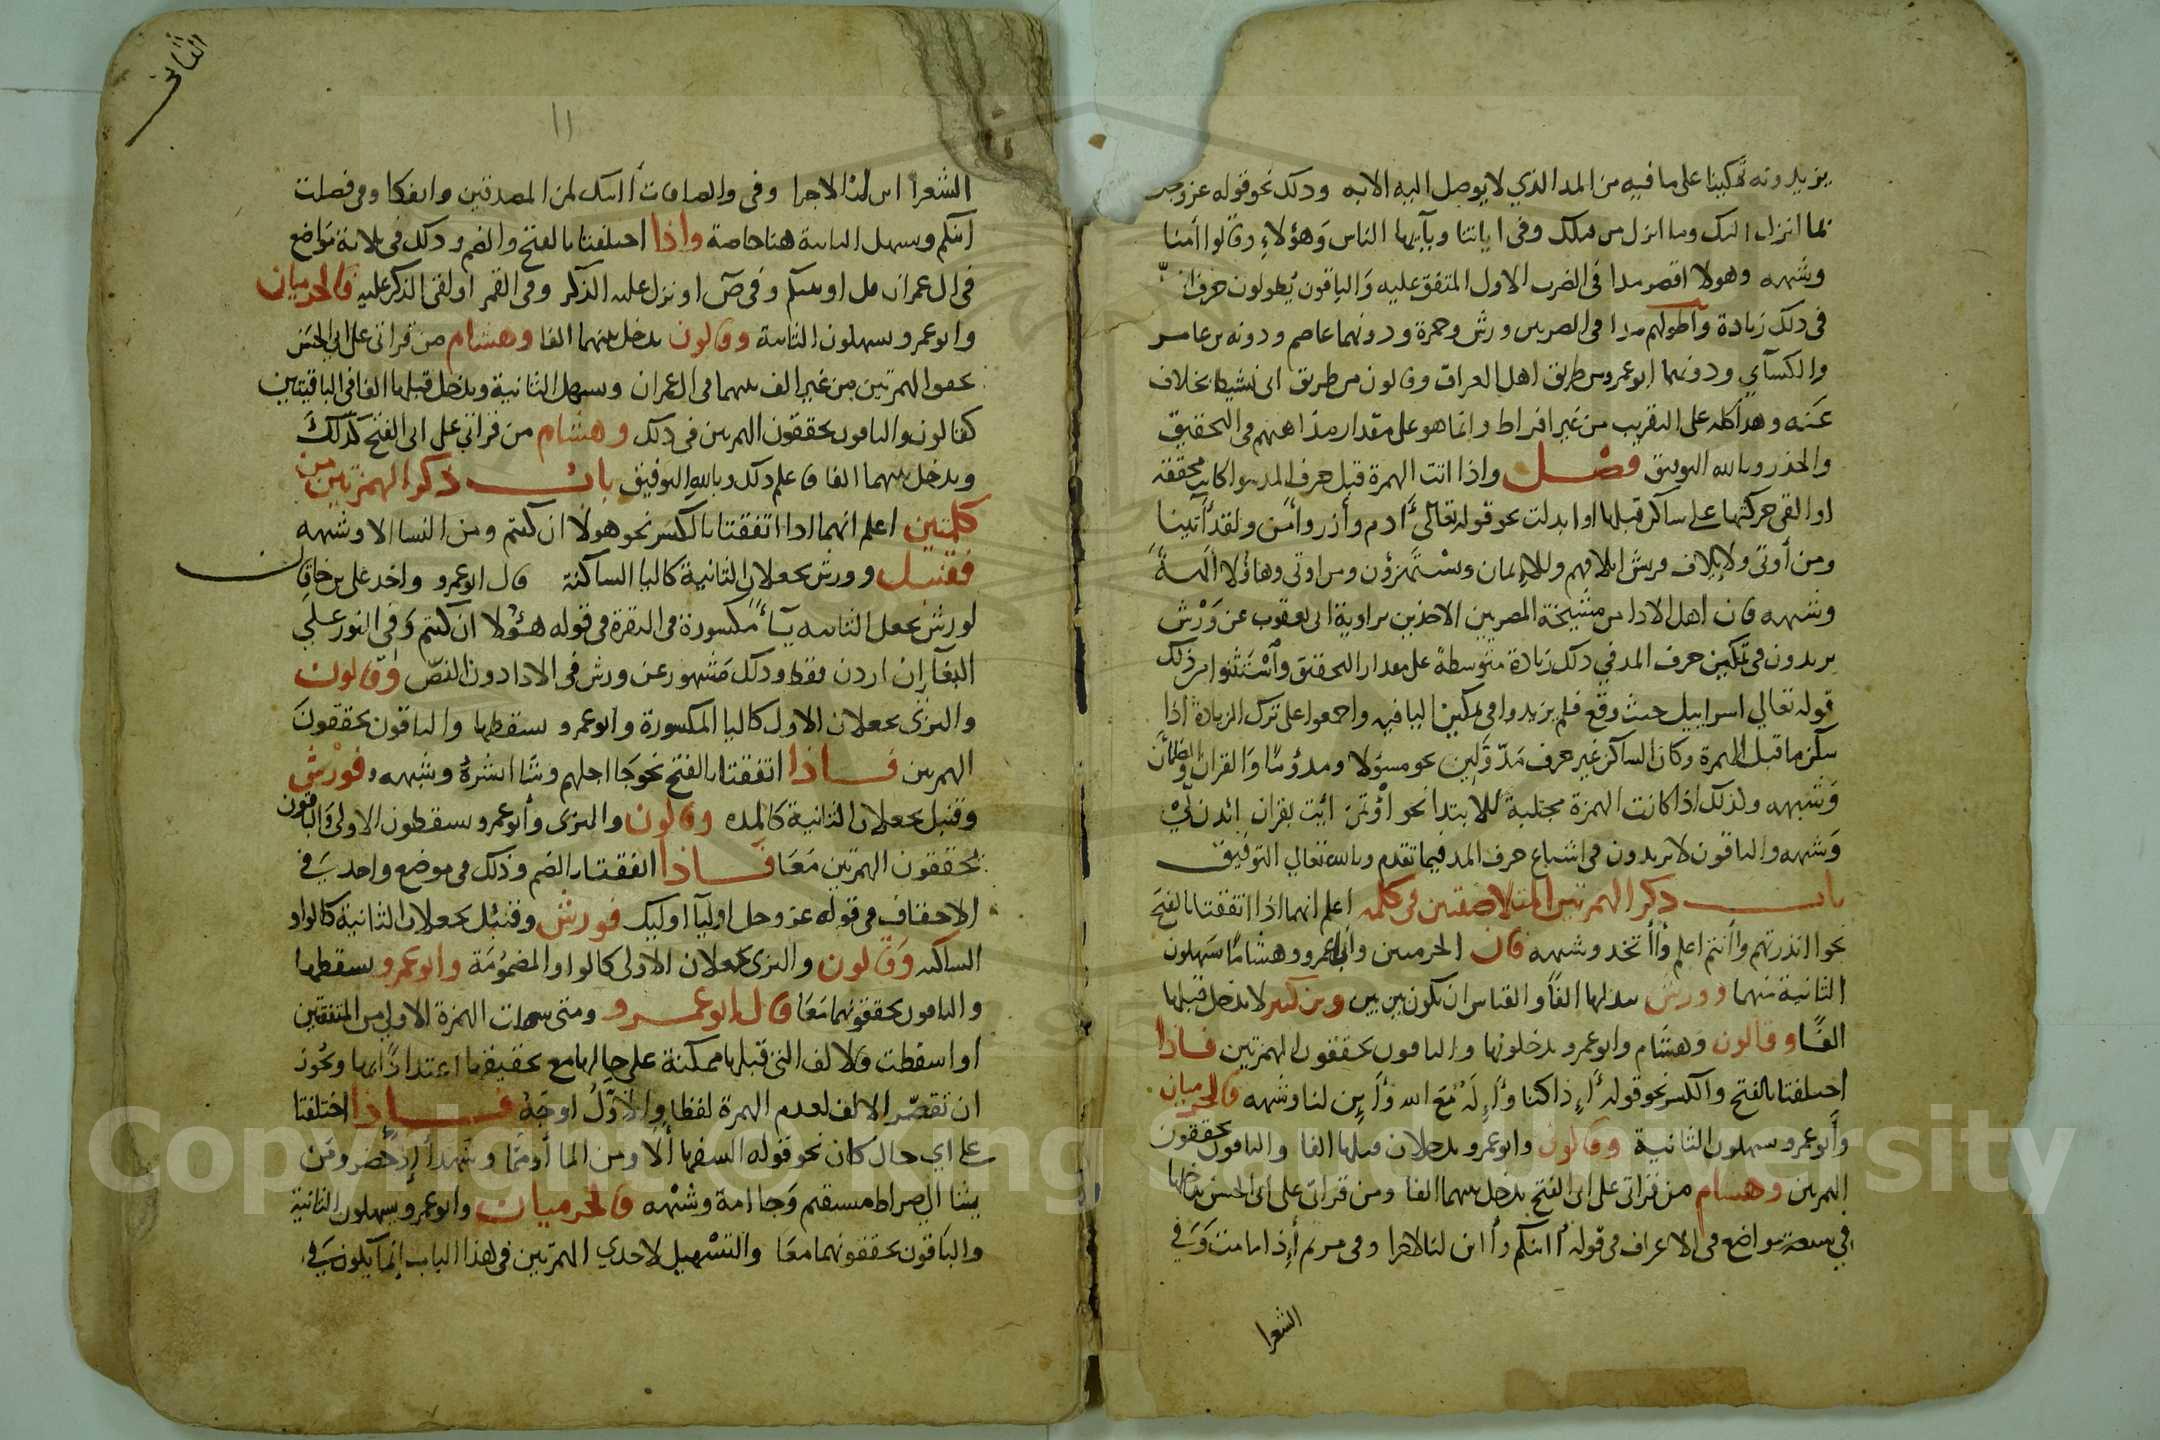 يزيدونه تمكينا على ما فيه من المد الذي لا يوصل اليه الا به وذلك نحو قوله عز وجل
بما انزل اليك وما انزل من قبلك وفى اياتنا ويآيها الناس وهؤلاء وقالوا آمنا
وشبهه وهولا اقصر مدا فى الضرب الاول المتفق عليه والباقون يطولون حرف
فى ذلك زيادة واطولهم مدا فى الضربين ورش وحمزة ودونهما عاصم ودونه بن عامر
والكسآي ودونهما ابو عمرو من طريق اهل العراق وقالون من طريق ابى نشيط بخلاف
عنه وهذا كله على التقريب من غير افراط وانما هو على مقدار مذاهبهم فى التحقيق
والحذر وبالله التوفيق فصل واذا اتت الهمزة قبل حرف المد سوا كانت محققة
او القى حركتها على ساكن قبلها او ابدلت نحو قوله تعالى ءادم وأازر وأامن ولقد آتينا
ومن أوتى ولإيلاف قريش ايلافهم وللإيمان ويستهزؤن ومن اوتى وهاؤلا آلهة
وشبهه فان اهل الادا من مشيخة المصريين الاخذين برواية ابى يعقوب عن ورش
يزيدون فى تمكين حرف المد فى ذلك زيادة متوسطة على مقدار التحقيق واستثنوا من ذلك
قوله تعالي اسراييل حيث وقع فلم يزيدوا فى تمكين اليا فيه واجمعوا على ترك الزيادة اذا
سكن ما قبل الهمزة وكان الساكن غير حرف مد ولين نحو مسؤلا ومذؤما والقران والظمآن
وشبهه وكذلك اذا كانت الهمزة مجتلبة للابتدا نحو اؤتمن ائت بقران ائذن لي
وشبهه والباقون لا يزيدون فى اشباع حرف المد فيما تقدم وبالله تعالي التوفيق
باب ذكر الهمزتين المتلاصقتين فى كلمة اعلم انهما اذا اتفقتا بالفتح
نحو اانذرتهم وأأنتم اعلم وأأتخذ وشبهه فان الحرميين وأبا عمرو وهشاما يسهلون
الثانية منهما وورش يبدلها الفا والقياس ان يكون بين بين وبن كثير لا يدخل قبلها
الفا وقالون وهشام وابو عمرو يدخلونها والباقون يحققون الهمزتين فاذا
اختلفتا بالفتح والكسر نحو قوله أإذا كنا وأإله مع الله وأإن لنا وشبهه فالحرميان
وأبو عمرو يسهلون الثانية وقالون وابو عمرو يدخلان قبلها الفا والباقون يحققون
الهمزتين وهشام من قراتى على ابى الفتح يدخل بينهما الفا ومن قراتى على ابى الحسن يدخلها
فى سبعة مواضع فى الاعراف فى قوله أانكم وأان لنا لاجرا وفى مريم أإذا ما مت وفى
الشعرا
الثانى
١١
الشعرا اين لنا لاجرا وفى والصافات أانك لمن المصدقين وايفكا وفى فصلت
أئنكم ويسهل الثانية هنا خاصة واذا اختلفتا بالفتح والضم وذلك فى ثلاثة مواضع
فى ال عمران قل اونبيكم وفى ص اونزل عليه الذكر وفى القمر اولقى الذكر عليه فالحرميان
وابو عمرو يسهلون الثانية وقالون يدخل بينهما الفا وهشام من قراتى على ابى الحسن
يحقق الهمزتين من غير الف بينهما فى ال عمران ويسهل الثانية ويدخل قبلها الفا فى الباقيتين
كقالون والباقون يحققون الهمزتين فى ذلك وهشام من قراتى على ابى الفتح كذلك
ويدخل بينهما الفا فاعلم ذلك وبالله التوفيق باب ذكر الهمزتين من
كلمتين اعلم انهما اذا اتفقتا بالكسر نحو هولا ان كنتم ومن النسا الا وشبهه
فقنبل وورش يجعلان الثانية كاليا الساكنة قال ابو عمرو واخذ على بن خاقان
لورش بجعل الثانية يآ مكسورة فى البقرة فى قوله هؤلا ان كنتم وفى النور على
البغآ إن اردن فقط وذلك مشهور عن ورش فى الادا دون النص وقالون
والبزى يجعلان الاولى كاليا المكسورة وابو عمرو يسقطها والباقون يحققون
الهمزتين فاذا اتفقتا بالفتح نحو جا اجلهم وشا انشره وشبهه فورش
وقنبل يجعلان الثانية كالمدة وقالون والبزى وأبو عمرو يسقطون الاولى والباقون
يحققون الهمزتين معا فاذا اتفقتا بالضم وذلك فى موضع واحد فى
الاحقاف فى قوله عز وجل اوليآ اوليك فورش وقنبل يجعلان الثانية كالواو
الساكنه وقالون والبزى يجعلان الاولى كالواو المضمومة وابو عمرو يسقطها
والباقون يحققونهما معا قال ابو عمرو ومتى سهلت الهمزة الاولى من المتفقتين
او اسقطت فالالف التى قبلها ممكنة على حالها مع تحقيقها اعتدادا بها ويجوز
ان تقصر الالف لعدم الهمزة لفظا والأول اوجه فاذا اختلفتا
على اي حال كان نحو قوله السفها ألا ومن الما أو مما وشهدآ إذ حضر ومن
يشا الى صراط مستقيم وجا امة وشبهه فالحرميان وابو عمرو يسهلون الثانية
والباقون يحققونهما معا والتسهيل لاحدى الهمزتين فى هذا الباب إنما يكون فى